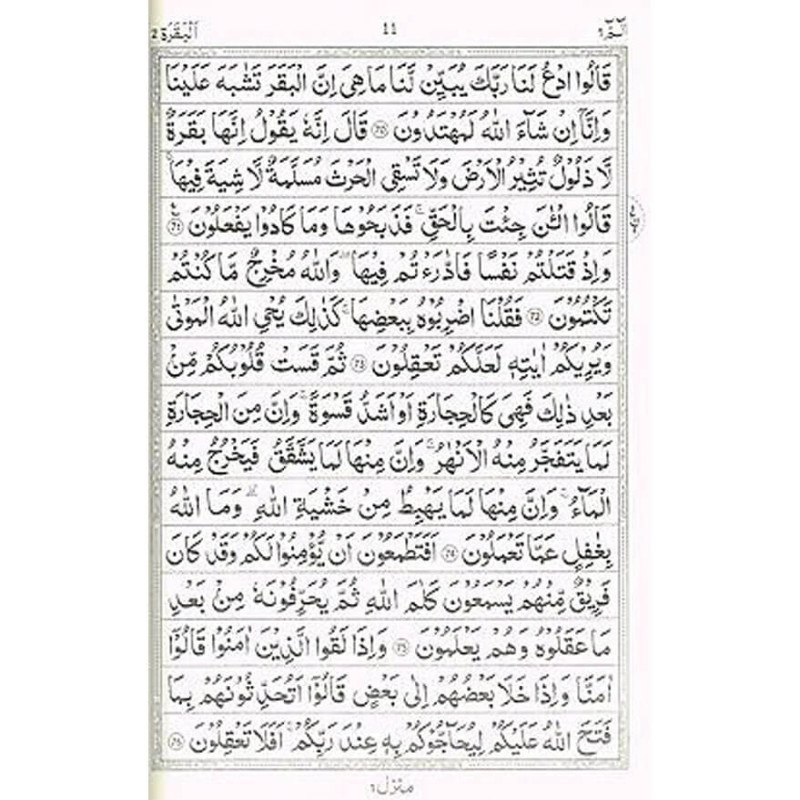 الٓمّٓ ١
11
اَلْبَقَرَة ٢
قَالُوا ادْعُ لَنَا رَبَّكَ يُبَيِّنْ لَّنَا مَا هِىَ اِنَّ الْبَقَرَ تَشٰبَهَ عَلَيْنَا
وَاِنَّاۤ اِنْ شَآءَ اللّٰهُ لَمُهْتَدُوْنَ ﴿70﴾ قَالَ اِنَّهٗ يَقُوْلُ اِنَّهَا بَقَرَةٌ
لَّا ذَلُوْلٌ تُثِيْرُ الْاَرْضَ وَلَا تَسْقِى الْحَرْثَ مُسَلَّمَةٌ لَّا شِيَةَ فِيْهَا ؕ
قَالُوا الْـٰٔنَ جِئْتَ بِالْحَقِّ ۚ فَذَبَحُوْهَا وَمَا كَادُوْا يَفْعَلُوْنَ ﴿71﴾
وَاِذْ قَتَلْتُمْ نَفْسًا فَادّٰرَءْتُمْ فِيْهَا ؕ وَاللّٰهُ مُخْرِجٌ مَّا كُنْتُمْ
تَكْتُمُوْنَ ﴿72﴾ فَقُلْنَا اضْرِبُوْهُ بِبَعْضِهَا ؕ كَذٰلِكَ يُحْىِ اللّٰهُ الْمَوْتٰى
وَيُرِيْكُمْ اٰيٰتِهٖ لَعَلَّكُمْ تَعْقِلُوْنَ ﴿73﴾ ثُمَّ قَسَتْ قُلُوْبُكُمْ مِّنْۢ
بَعْدِ ذٰلِكَ فَهِىَ كَالْحِجَارَةِ اَوْ اَشَدُّ قَسْوَةً ؕ وَاِنَّ مِنَ الْحِجَارَةِ
لَمَا يَتَفَجَّرُ مِنْهُ الْاَنْهٰرُ ؕ وَاِنَّ مِنْهَا لَمَا يَشَّقَّقُ فَيَخْرُجُ مِنْهُ
الْمَآءُ ؕ وَاِنَّ مِنْهَا لَمَا يَهْبِطُ مِنْ خَشْيَةِ اللّٰهِ ؕ وَمَا اللّٰهُ
بِغَافِلٍ عَمَّا تَعْمَلُوْنَ ﴿74﴾ اَفَتَطْمَعُوْنَ اَنْ يُّؤْمِنُوْا لَكُمْ وَقَدْ كَانَ
فَرِيْقٌ مِّنْهُمْ يَسْمَعُوْنَ كَلٰمَ اللّٰهِ ثُمَّ يُحَرِّفُوْنَهٗ مِنْۢ بَعْدِ
مَا عَقَلُوْهُ وَهُمْ يَعْلَمُوْنَ ﴿75﴾ وَاِذَا لَقُوا الَّذِيْنَ اٰمَنُوْا قَالُوْۤا
اٰمَنَّا وَاِذَا خَلَا بَعْضُهُمْ اِلٰى بَعْضٍ قَالُوْۤا اَتُحَدِّثُوْنَهُمْ بِمَا
فَتَحَ اللّٰهُ عَلَيْكُمْ لِيُحَآجُّوْكُمْ بِهٖ عِنْدَ رَبِّكُمْ ؕ اَفَلَا تَعْقِلُوْنَ ﴿76﴾
منزل ١